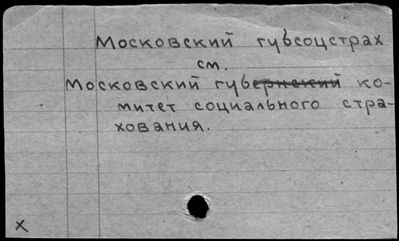 Московский губсоцстрах
см.
Московский губернский ко-
митет социального стра-
хования.
x